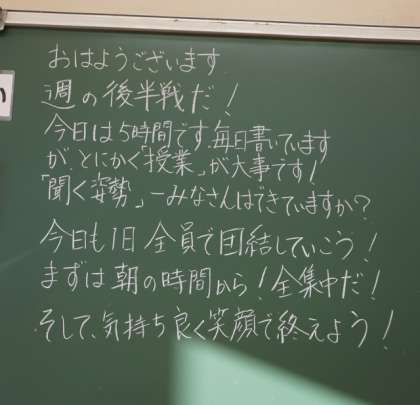 おはようございます
週の後半戦だ!
今日は5時間です.毎日書いています
が、とにかく「授業」が大事です!
「聞く姿勢」-みなさんはできていますか?
今日も1日全員で団結していこう!
まずは朝の時間から!全集中だ!
そして、気持ち良く笑顔で終えよう!